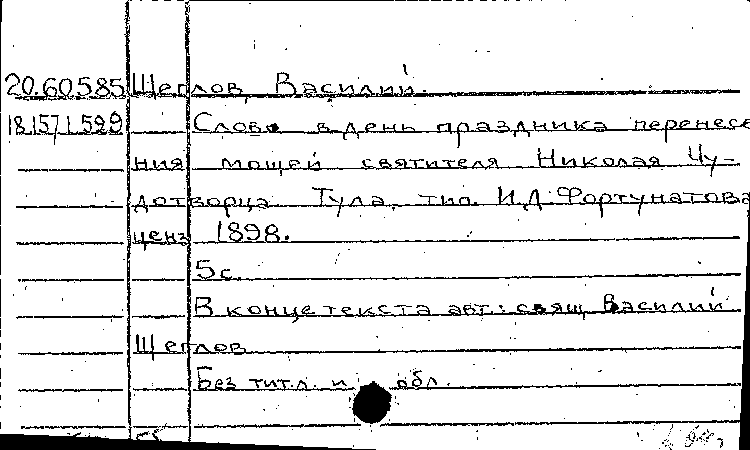 20.60585 Щеглов, Василий.
18.1571.529 Слово в день праздника перенесе
ния мощей святителя Николая Чу-
дотворца. Тула, тип. И.Д. Фортунатова
ценз. 1898.
5 с.
В конце текста авт.: свящ. Василий
Щеглов
Без титл. и обл.